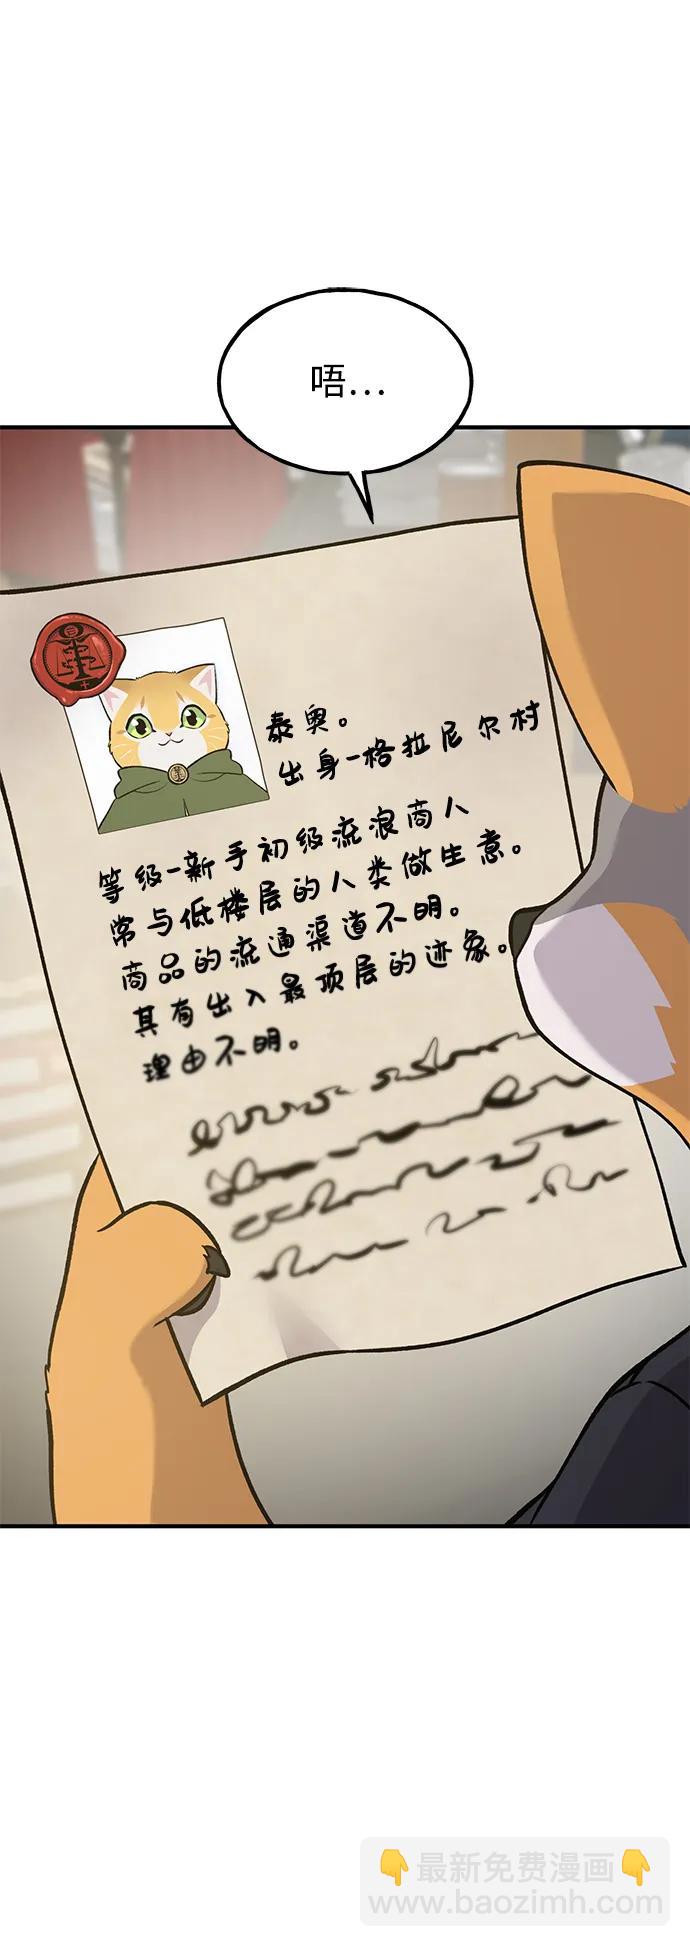 唔...
泰奥。
出身-格拉尼尔村
等级-新手初级流浪商人
常与低楼层的人类做生意。
商品的流通渠道不明。
其有出入最顶层的迹象。
理由不明。
👇最新免费漫画👇
www.baozimh.com